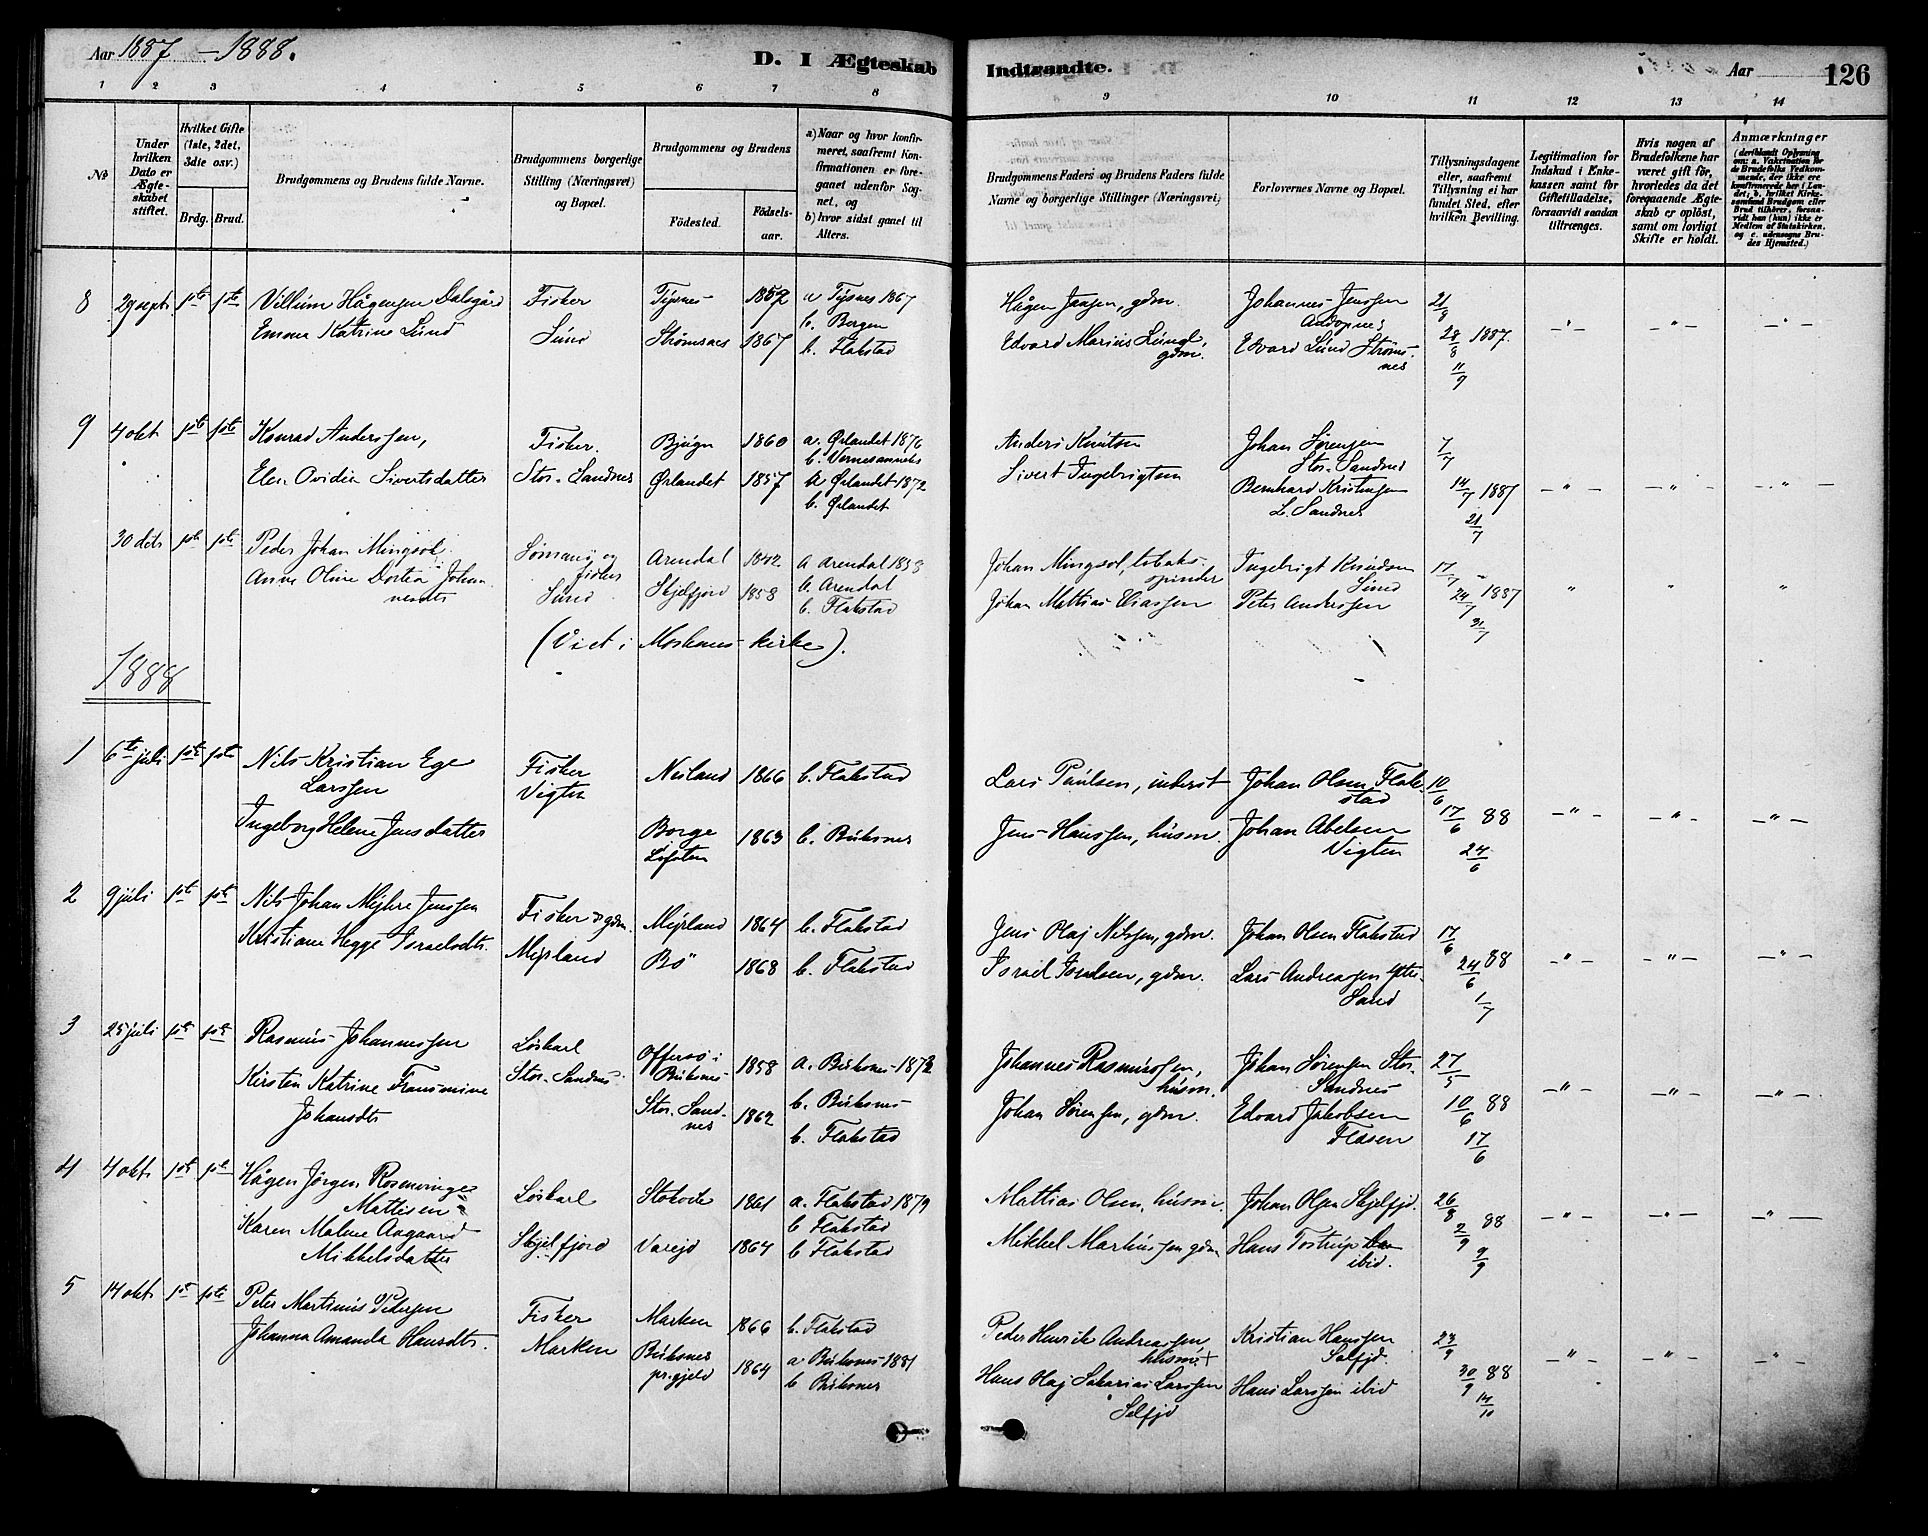 Aar 1887 – 1888.
D. I Ægteskab
Indtraadte.
Aar
126
1 2 3 4 5 6 7 8
9 10 11 12 13 14
No
Under hvilken Dato er Ægteskabet stiftet.
Hvilket Gifte (1ste, 2det, 3die osv.)
Brdg. Brud.
Brudgommens og Brudens fulde Navne.
Brudgommens borgerlige Stilling (Næringsvei) og Bopæl.
Brudgommens og Brudens
Fødested.
Fødselsaar.
a) Naar og hvor konfirmeret, saafremt Konfirmationen er foregaaet udenfor Sognet, og
b) hvor sidst gaaet til Alters.
Brudgommens Faders og Brudens Faders fulde Navne og borgerlige Stillinger (Næringsvei)
Forlovernes Navne og Bopæl.
Tillysningsdagene eller, saafremt Tillysning ei har fundet Sted, efter hvilken Bevilling.
Legitimation for Indskud i Enkekassen samt for Giftetilladelse, forsaavidt saadan tiltrænges.
Hvis nogen af Brudefolkene har været gift før, hvorledes da det foregaaende Ægteskab er opløst, samt om lovligt Skifte er holdt.
Anmærkninger
8 29 sept. 1ste 1ste Villum Hågensen Dalsgård Fisker Tysnes 1852 a Tysnes 1867 Hågen Jansen, gdm. Johannes Jenssen 21/8
b. Borgen Andopnes
Emma Katrine Lund Sund Strømsnes 1867 b. Flakstad Edvard Marius Lund, gdm. Edvard Lund Strømsnes 28/8 1887. – " – – " – – " –
11/9
9 4 okt 1ste 1ste Konrad Anderssen, Fisker. Bjugn 1860 a. Ørlandet 1876 Anders Knutsen Johan Sørensen 7/7
Stor-Sandnes
Elen Ovidia Sivertsdatter Stor-Sandnes Ørlandet 1857 a Ørlandet 1872 Sivert Ingebrigtsen Bernhard Kristensen 14/7 1887 – " – – " – – " –
b. Ørlandet L. Sandnes 21/7
30 dets 1ste 1ste Peder Johan Mingsol Sømand og fisker Arendal 1842 a Arendal 1858 Johan Mingsol, tobakspinder Ingebrigt Knudsen Sund 17/7
b. Arendal
Anne Oline Dortea Johannesdtr Sund Skjelfjord 1858 b. Flakstad Johan Mattias Eliassen Peter Anderssen 24/7 1887 " " "
31/7
(Viet i Moskenes kirke).
1888
1 6te juli 1ste 1ste Nils Kristian Ege Larssen Fisker Vigten Nesland 1866 b. Flakstad Lars Paulsen, inderst Johan Olsen Flakstad 10/6
Ingeborg Helene Jensdatter Borge Lofoten 1863 b. Buksnes Jens Hanssen, husm. Johan Abelsen Vigten 17/6 88 – " – – " – – " –
24/6
2 9 juli 1ste 1ste Nils Johan Mejhre Jenssen Fisker gdm. Myrland 1864 b. Flakstad Jens Olaj Nilssen, gdm. Johan Olsen Flakstad 17/6
Kristiane Hegge Israelsdtr. Myrland Bø 1868 b. Flakstad Israel Israelsen, gdm. Lars Andreassen Ytter-Sand 24/6 88 – " – – " – – " –
1/7
3 25 juli 1ste 1ste Rasmus Johannessen Løskarl Offersø i Buksnes 1858 a. Buksnes 1872 Johannes Rasmussen, husm. Johan Sørensen Stor-Sandnes 27/5
b. Buksnes
Kirsten Katrine Fransmine Johansdtr Stor-Sandnes Stor-Sandnes 1862 b. Flakstad Johan Sørensen, gdm. Edvard Jakobsen 10/6 88 – " – – " – – " –
17/6
4 4 okt 1ste 1ste Hågen Jörgen Rosenvinge Mattisen Løskarl 1861 a. Flakstad 1879 Mattias Olsen, husm. Johan Olsen Skjelfjd. 26/8
b Flakstad
Karen Malene Aagaard Mikkelsdatter Skjelfjord Vareid 1864 b Flakstad Mikkel Martinssen gdm Hans Tostrup ibid. 2/9 88 – " – – " – – " –
9/9
5 14 okt. 1ste 1ste Peter Martinus Pedersen Fisker Marken 1866 b. Flakstad Peder Henrik Andreassen, husm. + Kristian Hanssen Selfjd. 23/9
Johanna Amanda Hansdtr. Marken Buksnes pr.gjeld 1864 a Buksnes 1881 Hans Olaj Sakarias Larssen Selfjd Hans Larssen ibid 30/9 88 – " – – " – – " –
b Buksnes 14/10